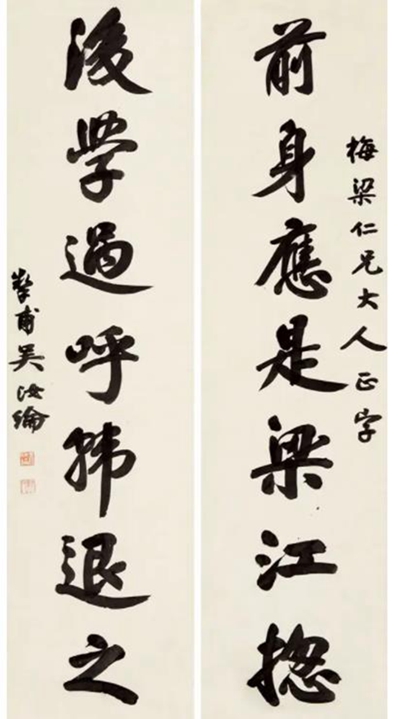 梅梁仁兄大人正字
前身應是梁江揔
後學過呼韓退之
摯甫吳汝綸